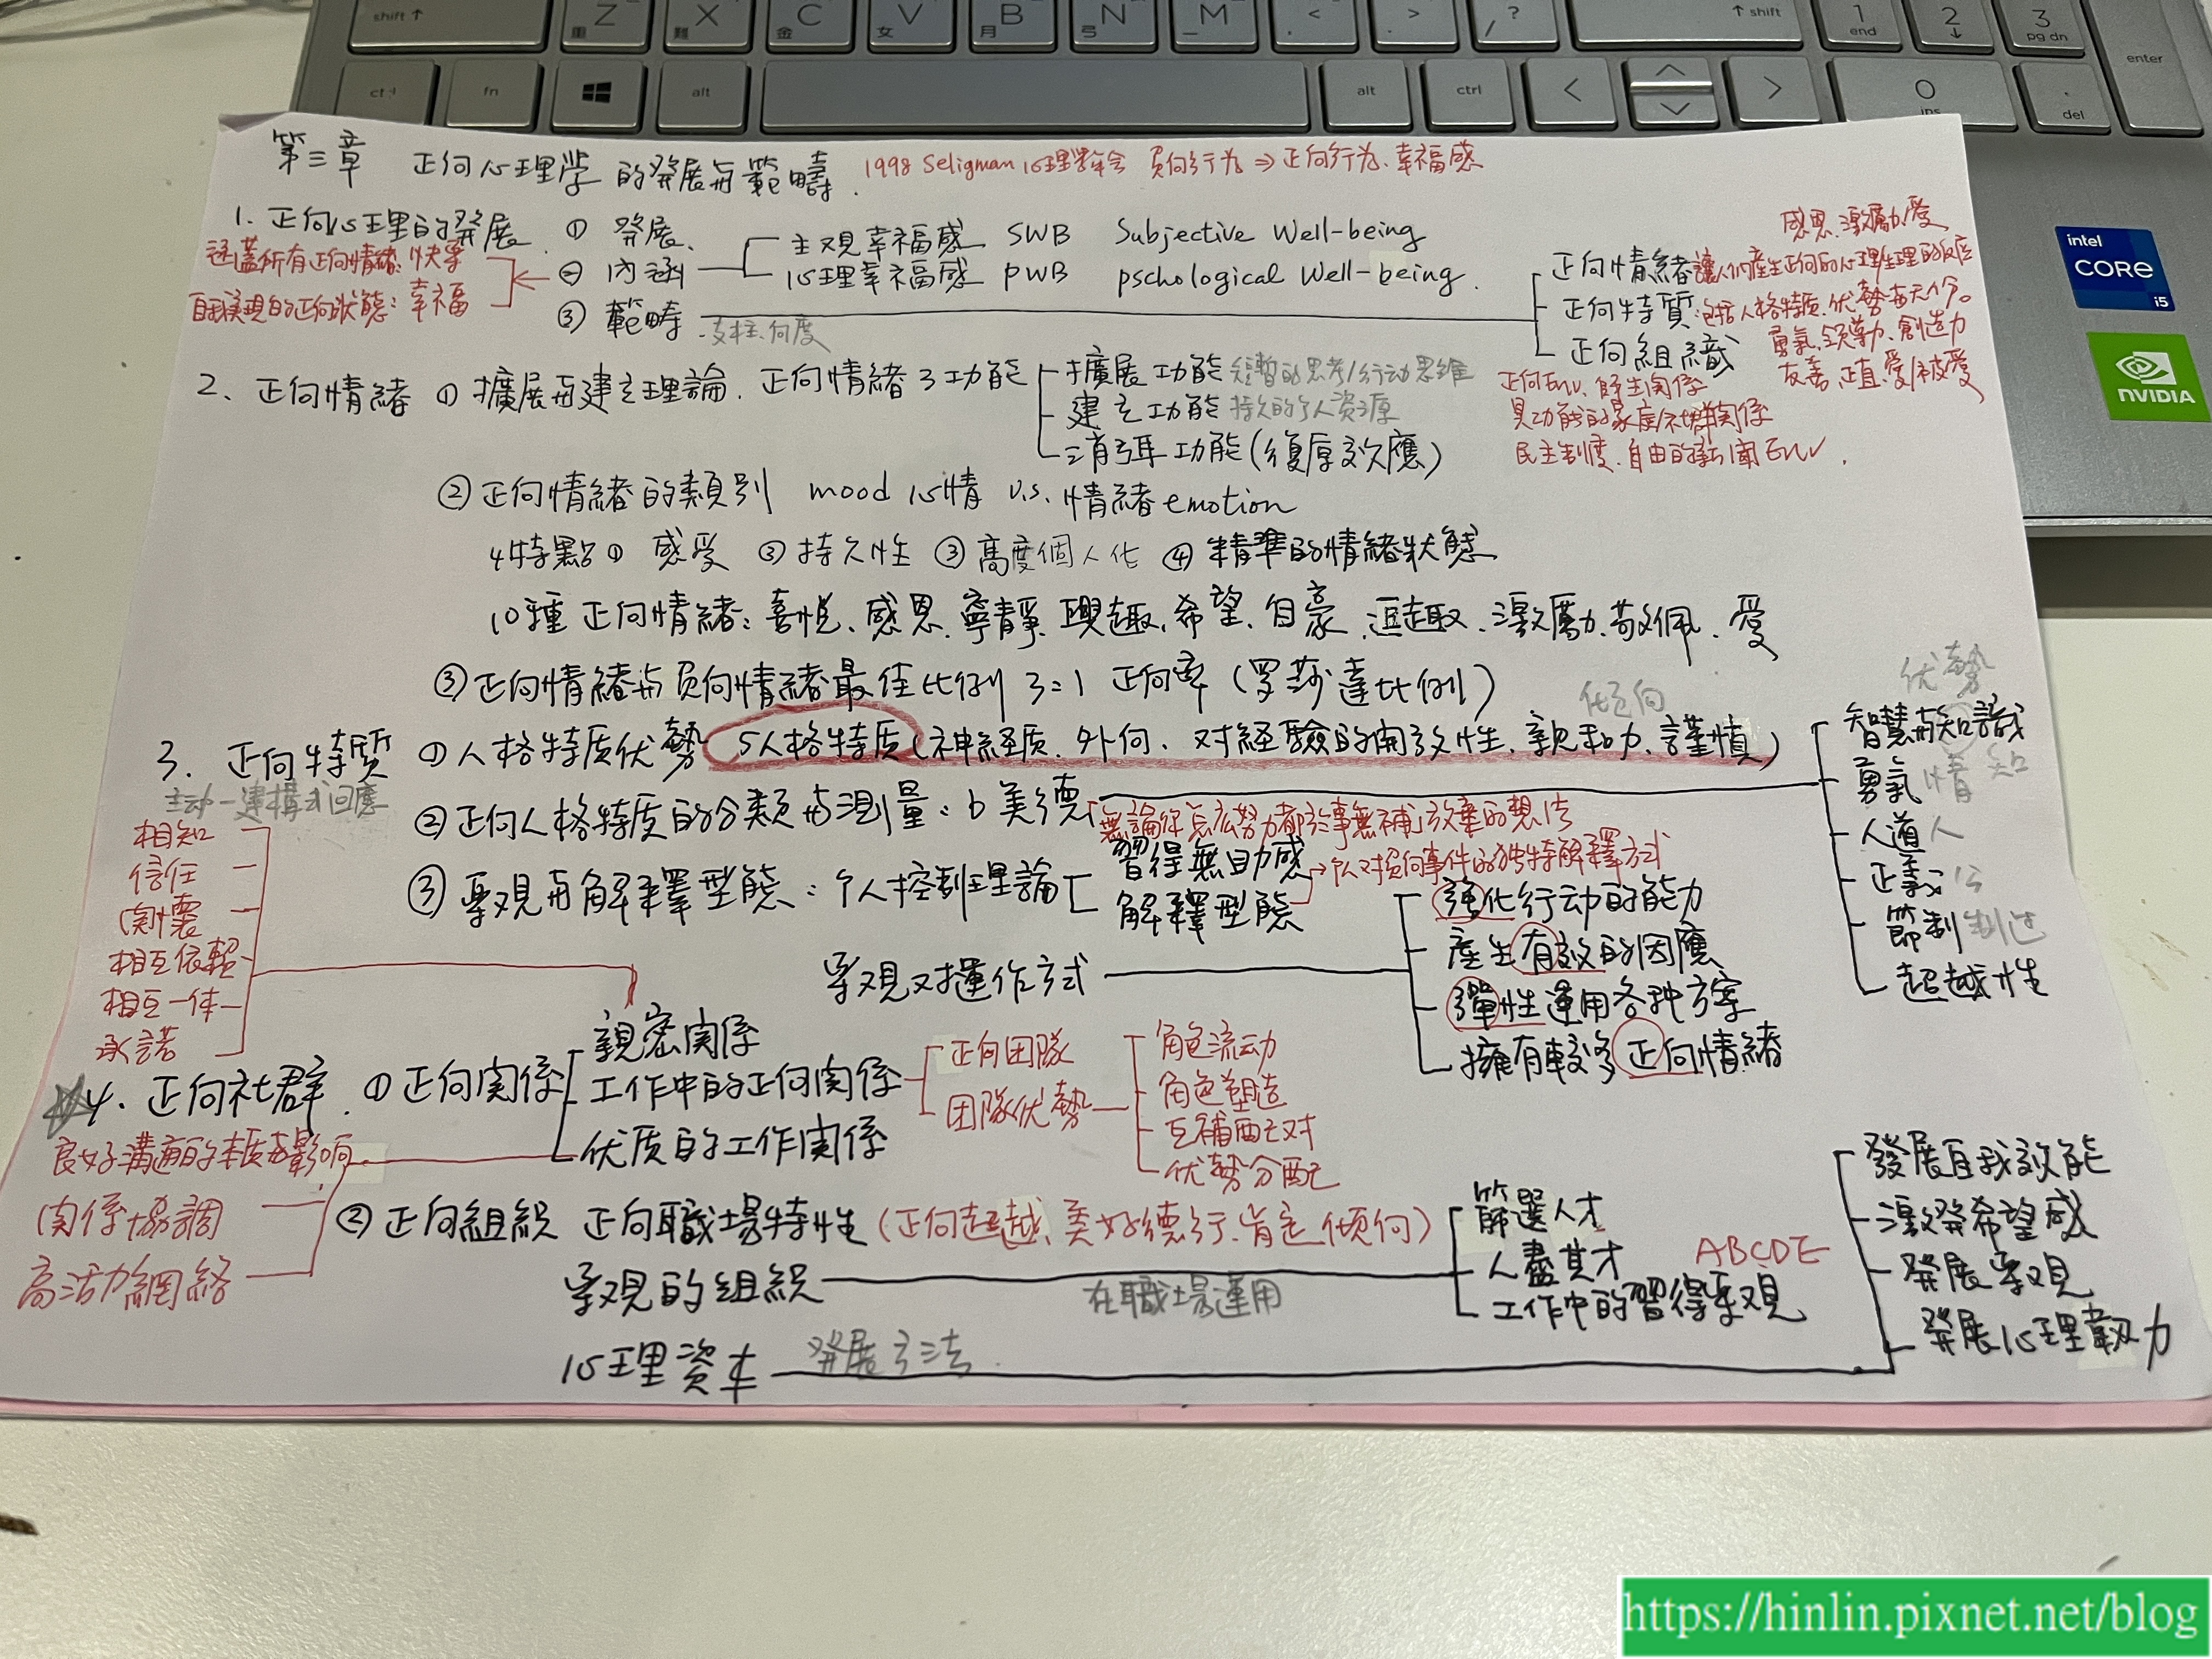 第三章 正向心理學的發展與範疇. 1998 Seligman 心理學年會 負向行為⇒正向行為、幸福感
1. 正向心理的發展 ① 發展、
② 內涵 主觀幸福感 SWB Subjective Well-being
心理幸福感 PWB pschological Well-being.
涵蓋所有正向情緒:快樂
自我實現的正向狀態:幸福
③ 範疇 支柱、向度
感恩、激勵、愛
正向情緒 讓人們產生正向的心理/生理的反應
正向特質:包括人格特质、优勢与天份。
勇氣、領導力、創造力
友善、正直、愛/被愛
正向組織
正向Env、師生関係
具功能的家庭/社群関係
民主制度、自由的新闻Env.
2、正向情緒 ① 擴展與建立理論. 正向情緒3功能 擴展功能 短暫的思考/行动思維
建立功能 持久的个人资源
消弭功能(復原效應)
② 正向情緒的類別 mood 心情 v.s. 情緒 emotion
4特點 ① 感受 ② 持久性 ③ 高度個人化 ④ 精準的情緒狀態
10種正向情緒:喜悅、感恩、寧靜、興趣、希望、自豪、逗趣、激勵、敬佩、愛
③ 正向情緒與負向情緒最佳比例 3:1 正向率 (罗莎達比例)
3. 正向特質 ① 人格特质优勢 5人格特质(神经质、外向、对經驗的開放性、親和力、謹慎)
② 正向人格特质的分類與測量:6美德
优勢
智慧與知識 知
勇氣 情
人道 人
正義 公
節制 制过
超越性
「無論你怎么努力都於事無補」放棄的想法
③ 樂觀與解釋型態:个人控制理論 習得無助感
解釋型態 →个人对负向事件的独特解釋方式
樂觀又对運作方式 強化行动的能力
產生有效的因應
彈性運用各种方案
擁有較多正向情緒
主动一建構式回應
相知
信任
関懷
相互依賴
相互一体
承諾
☆4. 正向社群. ① 正向関係 親密関係
工作中的正向関係 正向团隊
团隊优勢 角色流动
角色塑造
互補配对
优勢分配
优质的工作関係
良好溝通的本质與影响
関係協調
高活力網絡
② 正向組織 正向職場特性 (正向超越、美好德行、肯定傾向)
樂观的组織 在職場運用 篩選人才
人盡其才
工作中的習得樂观 ABCDE
心理資本 發展方法. 發展自我效能
激發希望感
發展樂观
發展心理韌力
shift ↑ Z X C V B N M < > / ? ↑ shift 1 end 2 ↓ 3 pg dn enter
重 難 金 女 月 弓 一
ctrl fn alt alt ctrl < > 0 ins . del
intel CORE i5
NVIDIA
https://hinlin.pixnet.net/blog